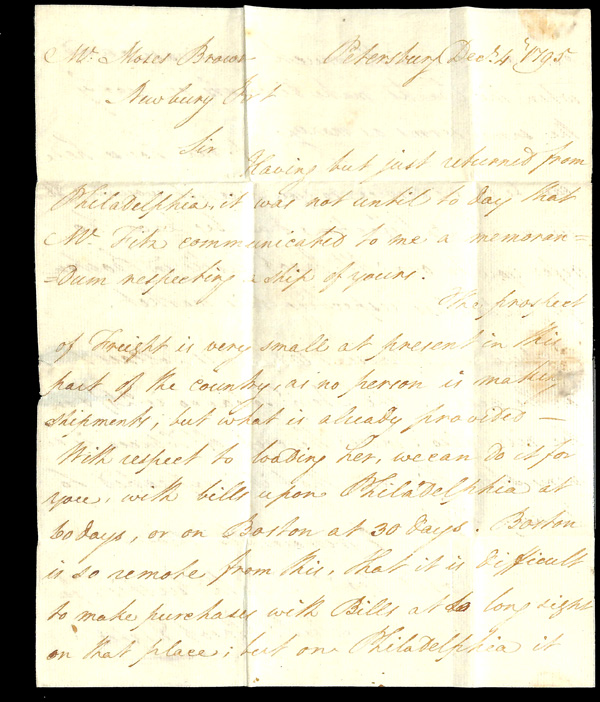 Mr. Moses Brown Petersburg Decr. 4th 1795
Newbury Port
Sir
Having but just returned from
Philadelphia, it was not until to day that
Mr. Fitz communicated to me a memoran=
=dum respecting a ship of yours.
The prospect
of Freight is very small at present in this
part of the country, as no person is making
shipments, but what is already provided —
With respect to loading her, we can do it for
you, with bills upon Philadelphia at
60 days, or on Boston at 30 days. Boston
is so remote from this, that it is difficult
to make purchases with Bills at long sight
on that place; but on Philadelphia it